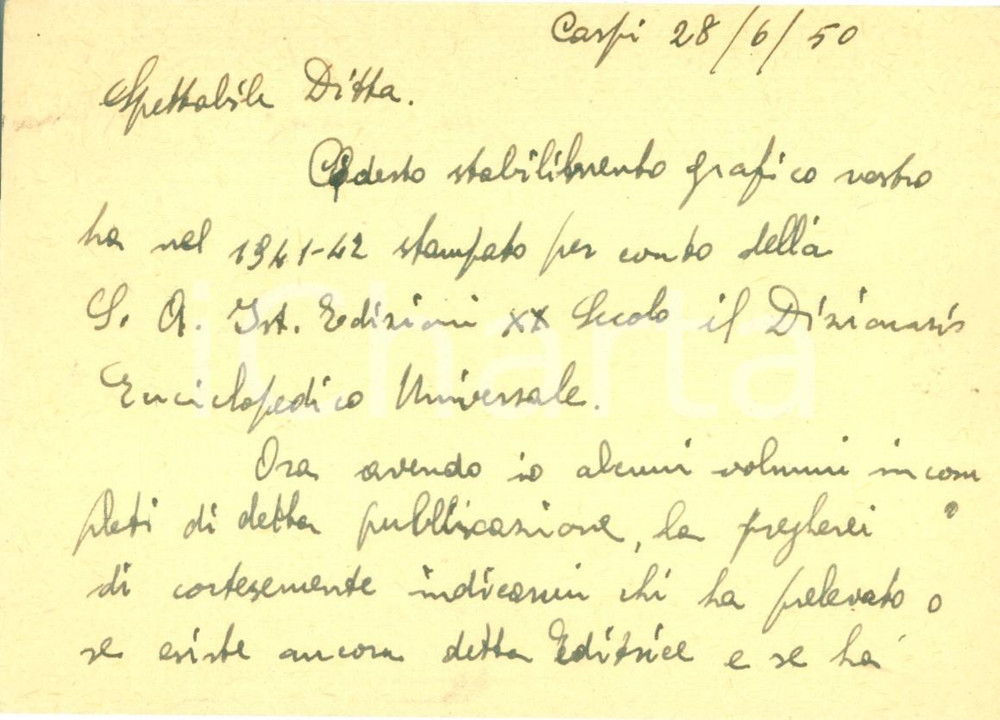 Carpi 28/6/50
Spettabile Ditta.
Codesto stabilimento grafico vostro
ha nel 1941-42 stampato per conto della
S. A. Ist. Edizioni XX Secolo il Dizionario
Enciclopedico Universale.
Ora avendo io alcuni volumi incom
pleti di detta pubblicazione, la pregherei
di cortesemente indicarmi chi ha prelevato o
se esiste ancora detta Editrice e se ha
iCharta